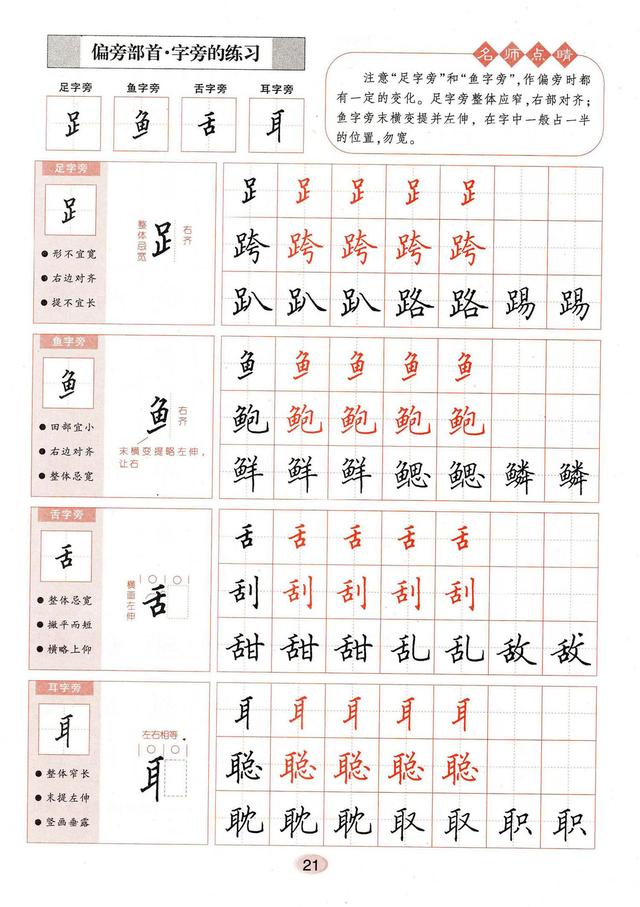 偏旁部首·字旁的练习
足字旁 鱼字旁 舌字旁 耳字旁
𧾷 鱼 舌 耳
名师点睛
注意“足字旁”和“鱼字旁”,作偏旁时都
有一定的变化。足字旁整体应窄,右部对齐;
鱼字旁末横变提并左伸,在字中一般占一半
的位置,勿宽。
足字旁
𧾷
● 形不宜宽
● 右边对齐
● 提不宜长
整体忌宽
𧾷
右齐
𧾷 𧾷 𧾷 𧾷 𧾷
跨 跨 跨 跨 跨
趴 趴 路 路 踢 踢
鱼字旁
鱼
● 田部宜小
● 右边对齐
● 整体忌宽
鱼
右齐
末横变提略左伸,
让右
鱼 鱼 鱼 鱼 鱼
鲍 鲍 鲍 鲍 鲍
鲜 鲜 鳃 鳃 鳞 鳞
舌字旁
舌
● 整体忌宽
● 撇平而短
● 横略上仰
横画左伸
舌
舌 舌 舌 舌 舌
刮 刮 刮 刮 刮
甜 甜 乱 乱 敌 敌
耳字旁
耳
● 整体窄长
● 末提左伸
● 竖画垂露
左右相等
耳
耳 耳 耳 耳 耳
聪 聪 聪 聪 聪
耽 耽 取 取 职 职
21